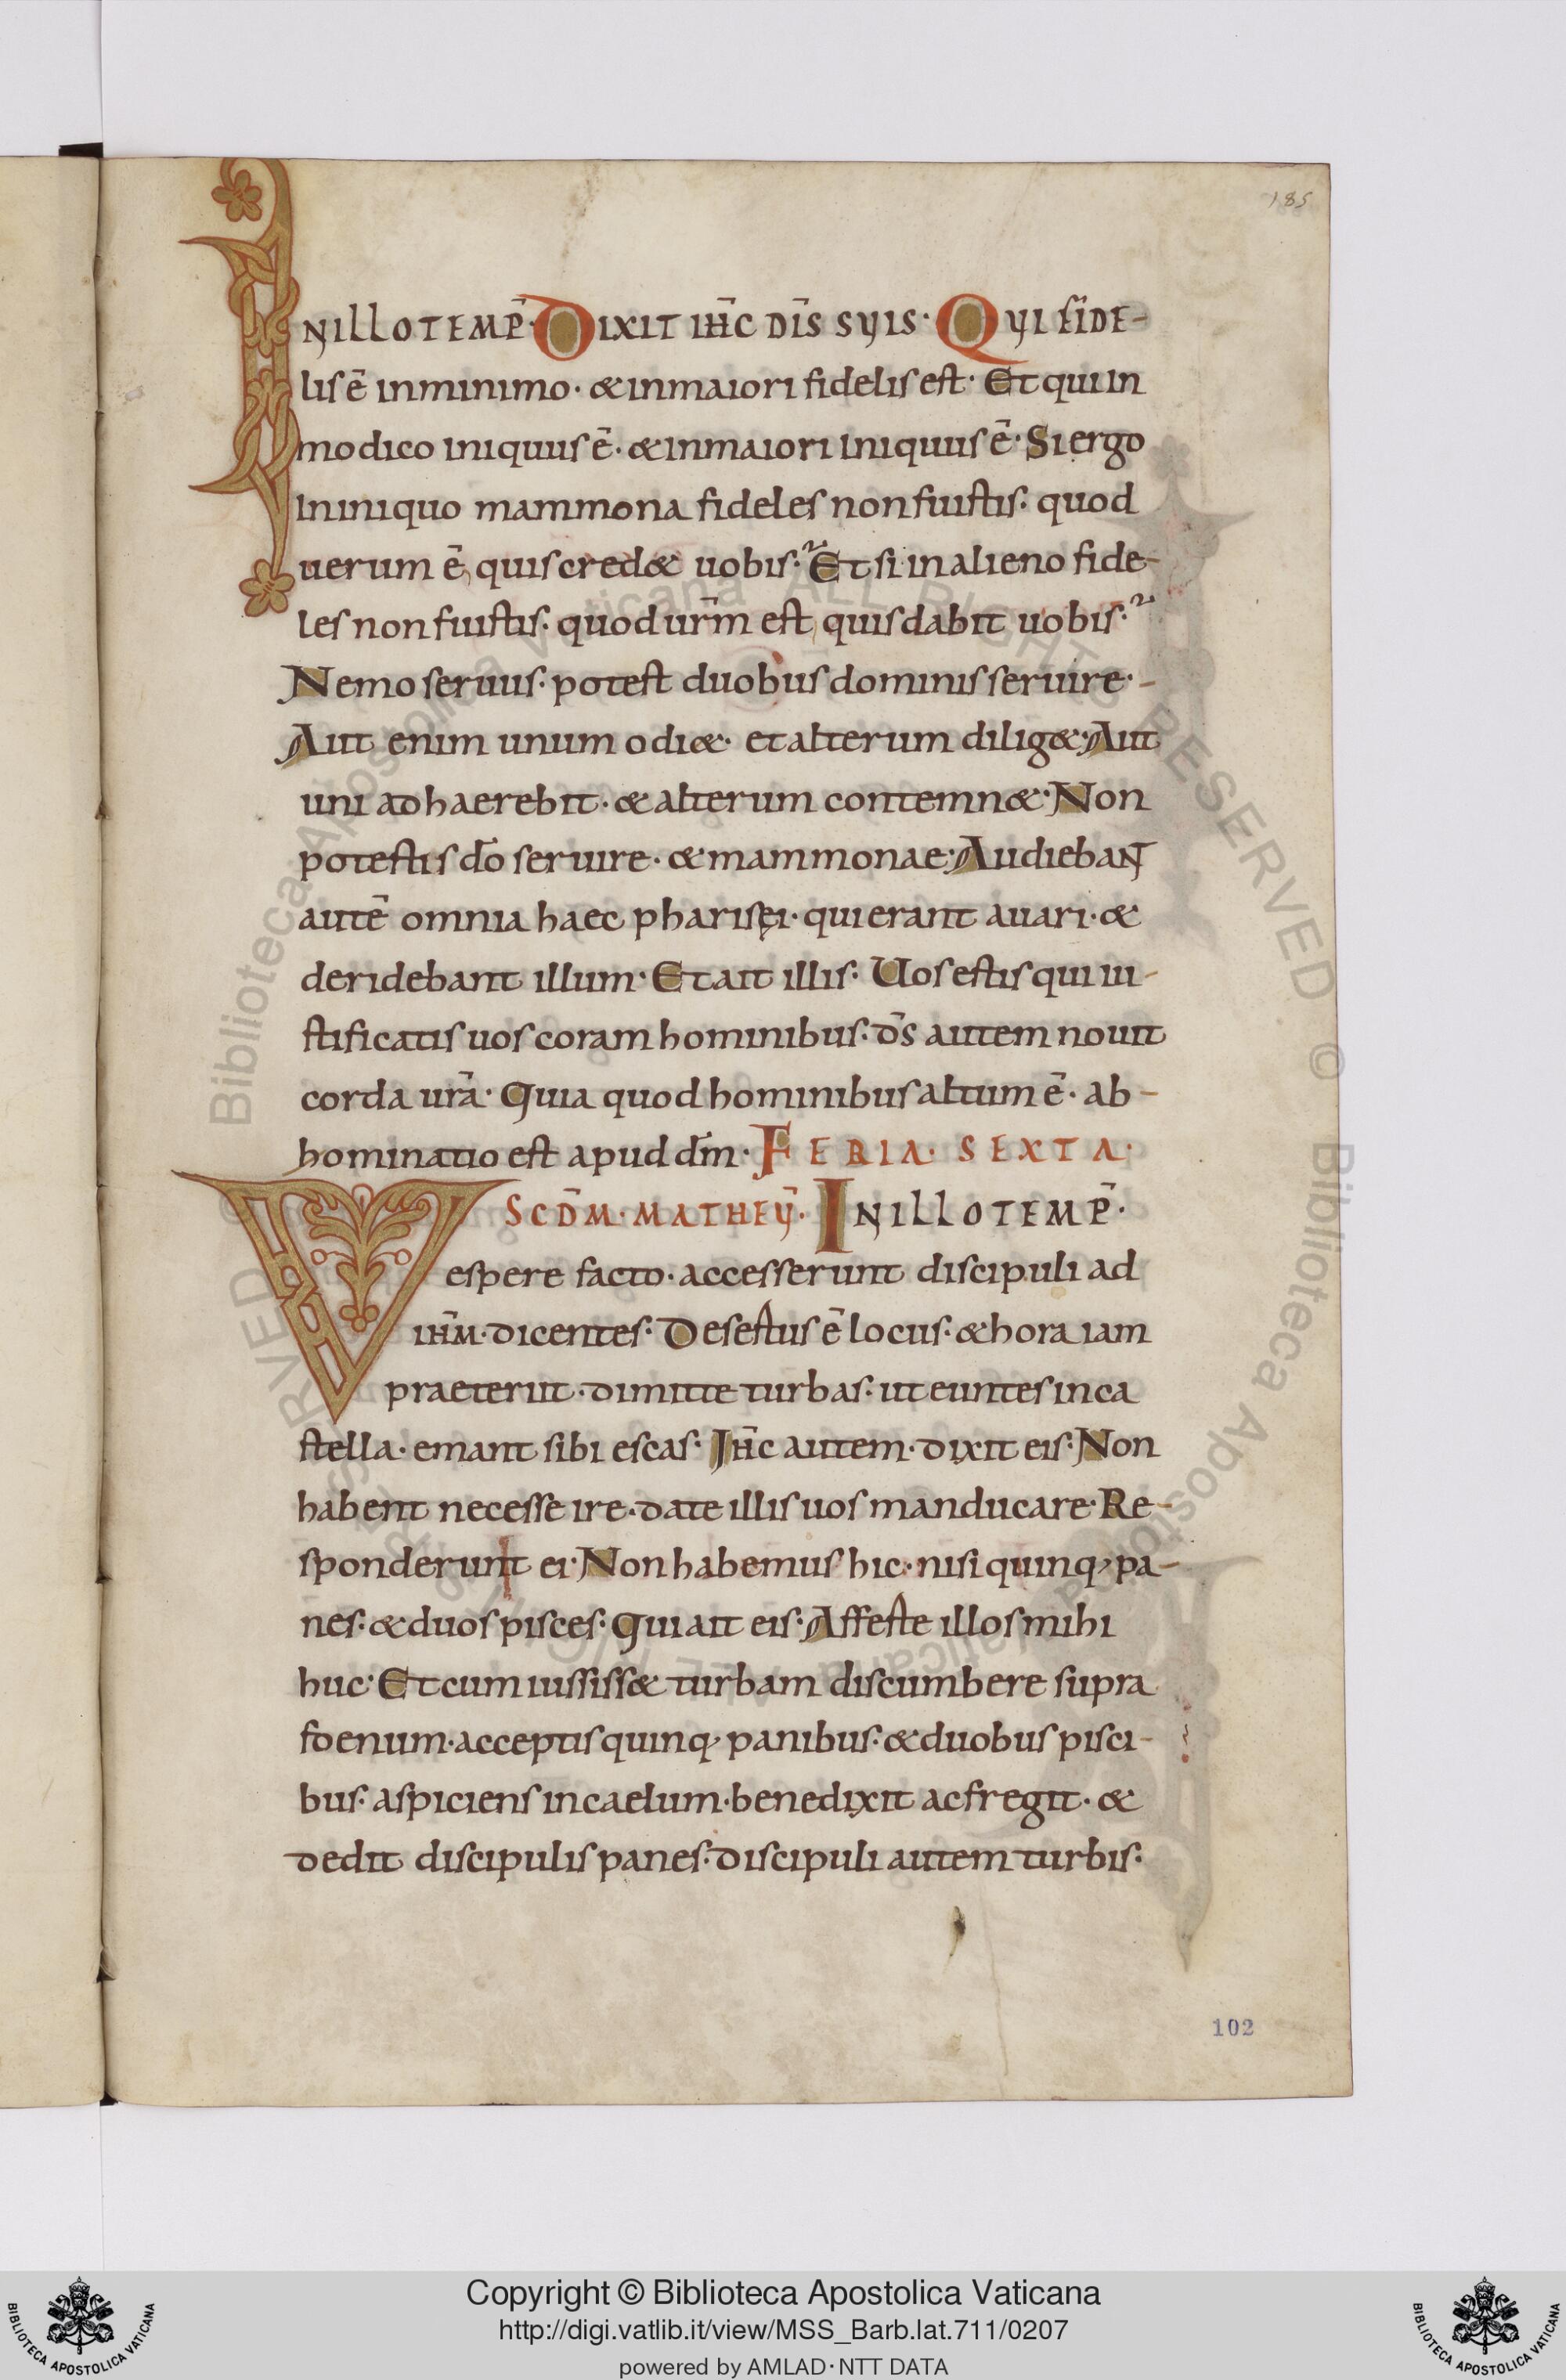 185
INILLOTEMP̄· DIXIT IH̄C DĪS SVIS· QVI FIDE-
lis ē in minimo· & in maiori fidelis est· Et qui in
modico iniquus ē· & in maiori iniquus ē· Si ergo
in iniquo mammona fideles non fuistis· quod
uerum ē quis cred& uobis·? Et si in alieno fide-
les non fuistis· quod ur̄m est quis dabit uobis·?
Nemo seruus· potest duobus dominis seruire·-
Aut enim unum odi&· et alterum dilig&· Aut
uni adhaerebit· & alterum contemn&· Non
potestis dō seruire· & mammonae· Audiebant
autē omnia haec pharisęi· qui erant auari· &
deridebant illum· Et ait illis· Uos estis qui iu-
stificatis uos coram hominibus· d̄s autem nouit
corda ur̄a· Quia quod hominibus altum ē· ab-
hominatio est apud dm̄· FERIA· SEXTA·
SCD̄M· MATHEV̄· INILLOTEMP̄·
Vespere facto· accesserunt discipuli ad
IH̄M· dicentes· Desertus ē locus· & hora iam
praeteriit· dimitte turbas· ut euntes in ca
stella· emant sibi escas· IH̄c autem· dixit eis· Non
habent necesse ire· date illis uos manducare· Re-
sponderunt ei· Non habemus hic· nisi quinq; pa-
nes· & duos pisces· Qui ait eis· Afferte illos mihi
huc· Et cum iussiss& turbam discumbere supra
foenum· acceptis quinq; panibus· & duobus pisci-
bus· aspiciens in caelum· benedixit ac fregit· &
dedit discipulis panes· discipuli autem turbis·
102
Biblioteca Apostolica Vaticana ALL RIGHTS RESERVED ©
Copyright © Biblioteca Apostolica Vaticana
http://digi.vatlib.it/view/MSS_Barb.lat.711/0207
powered by AMLAD·NTT DATA
BIBLIOTECA APOSTOLICA VATICANA
BIBLIOTECA APOSTOLICA VATICANA